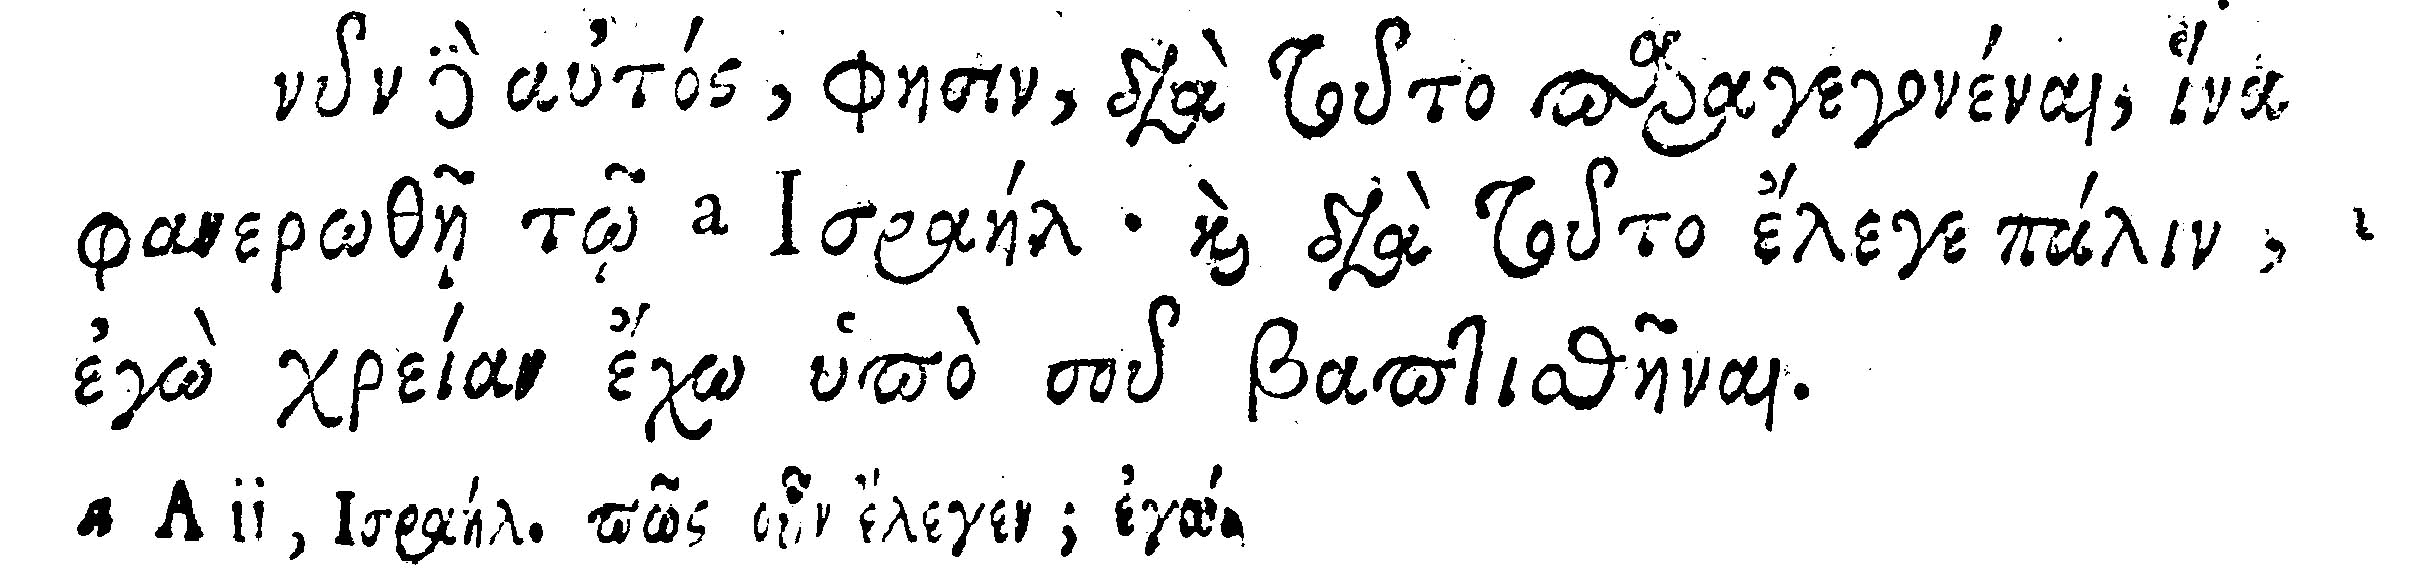 νῦν δὲ αὐτός, φησιν, διὰ τοῦτο παραγεγονέναι, ἵνα
φανερωθῇ τῷ a Ἰσραήλ· καὶ διὰ τοῦτο ἔλεγε πάλιν,
ἐγὼ χρείαν ἔχω ὑπὸ σοῦ βαπτισθῆναι.
a A ii, Ισραήλ. πῶς οὖν ἔλεγεν; ἐγώ